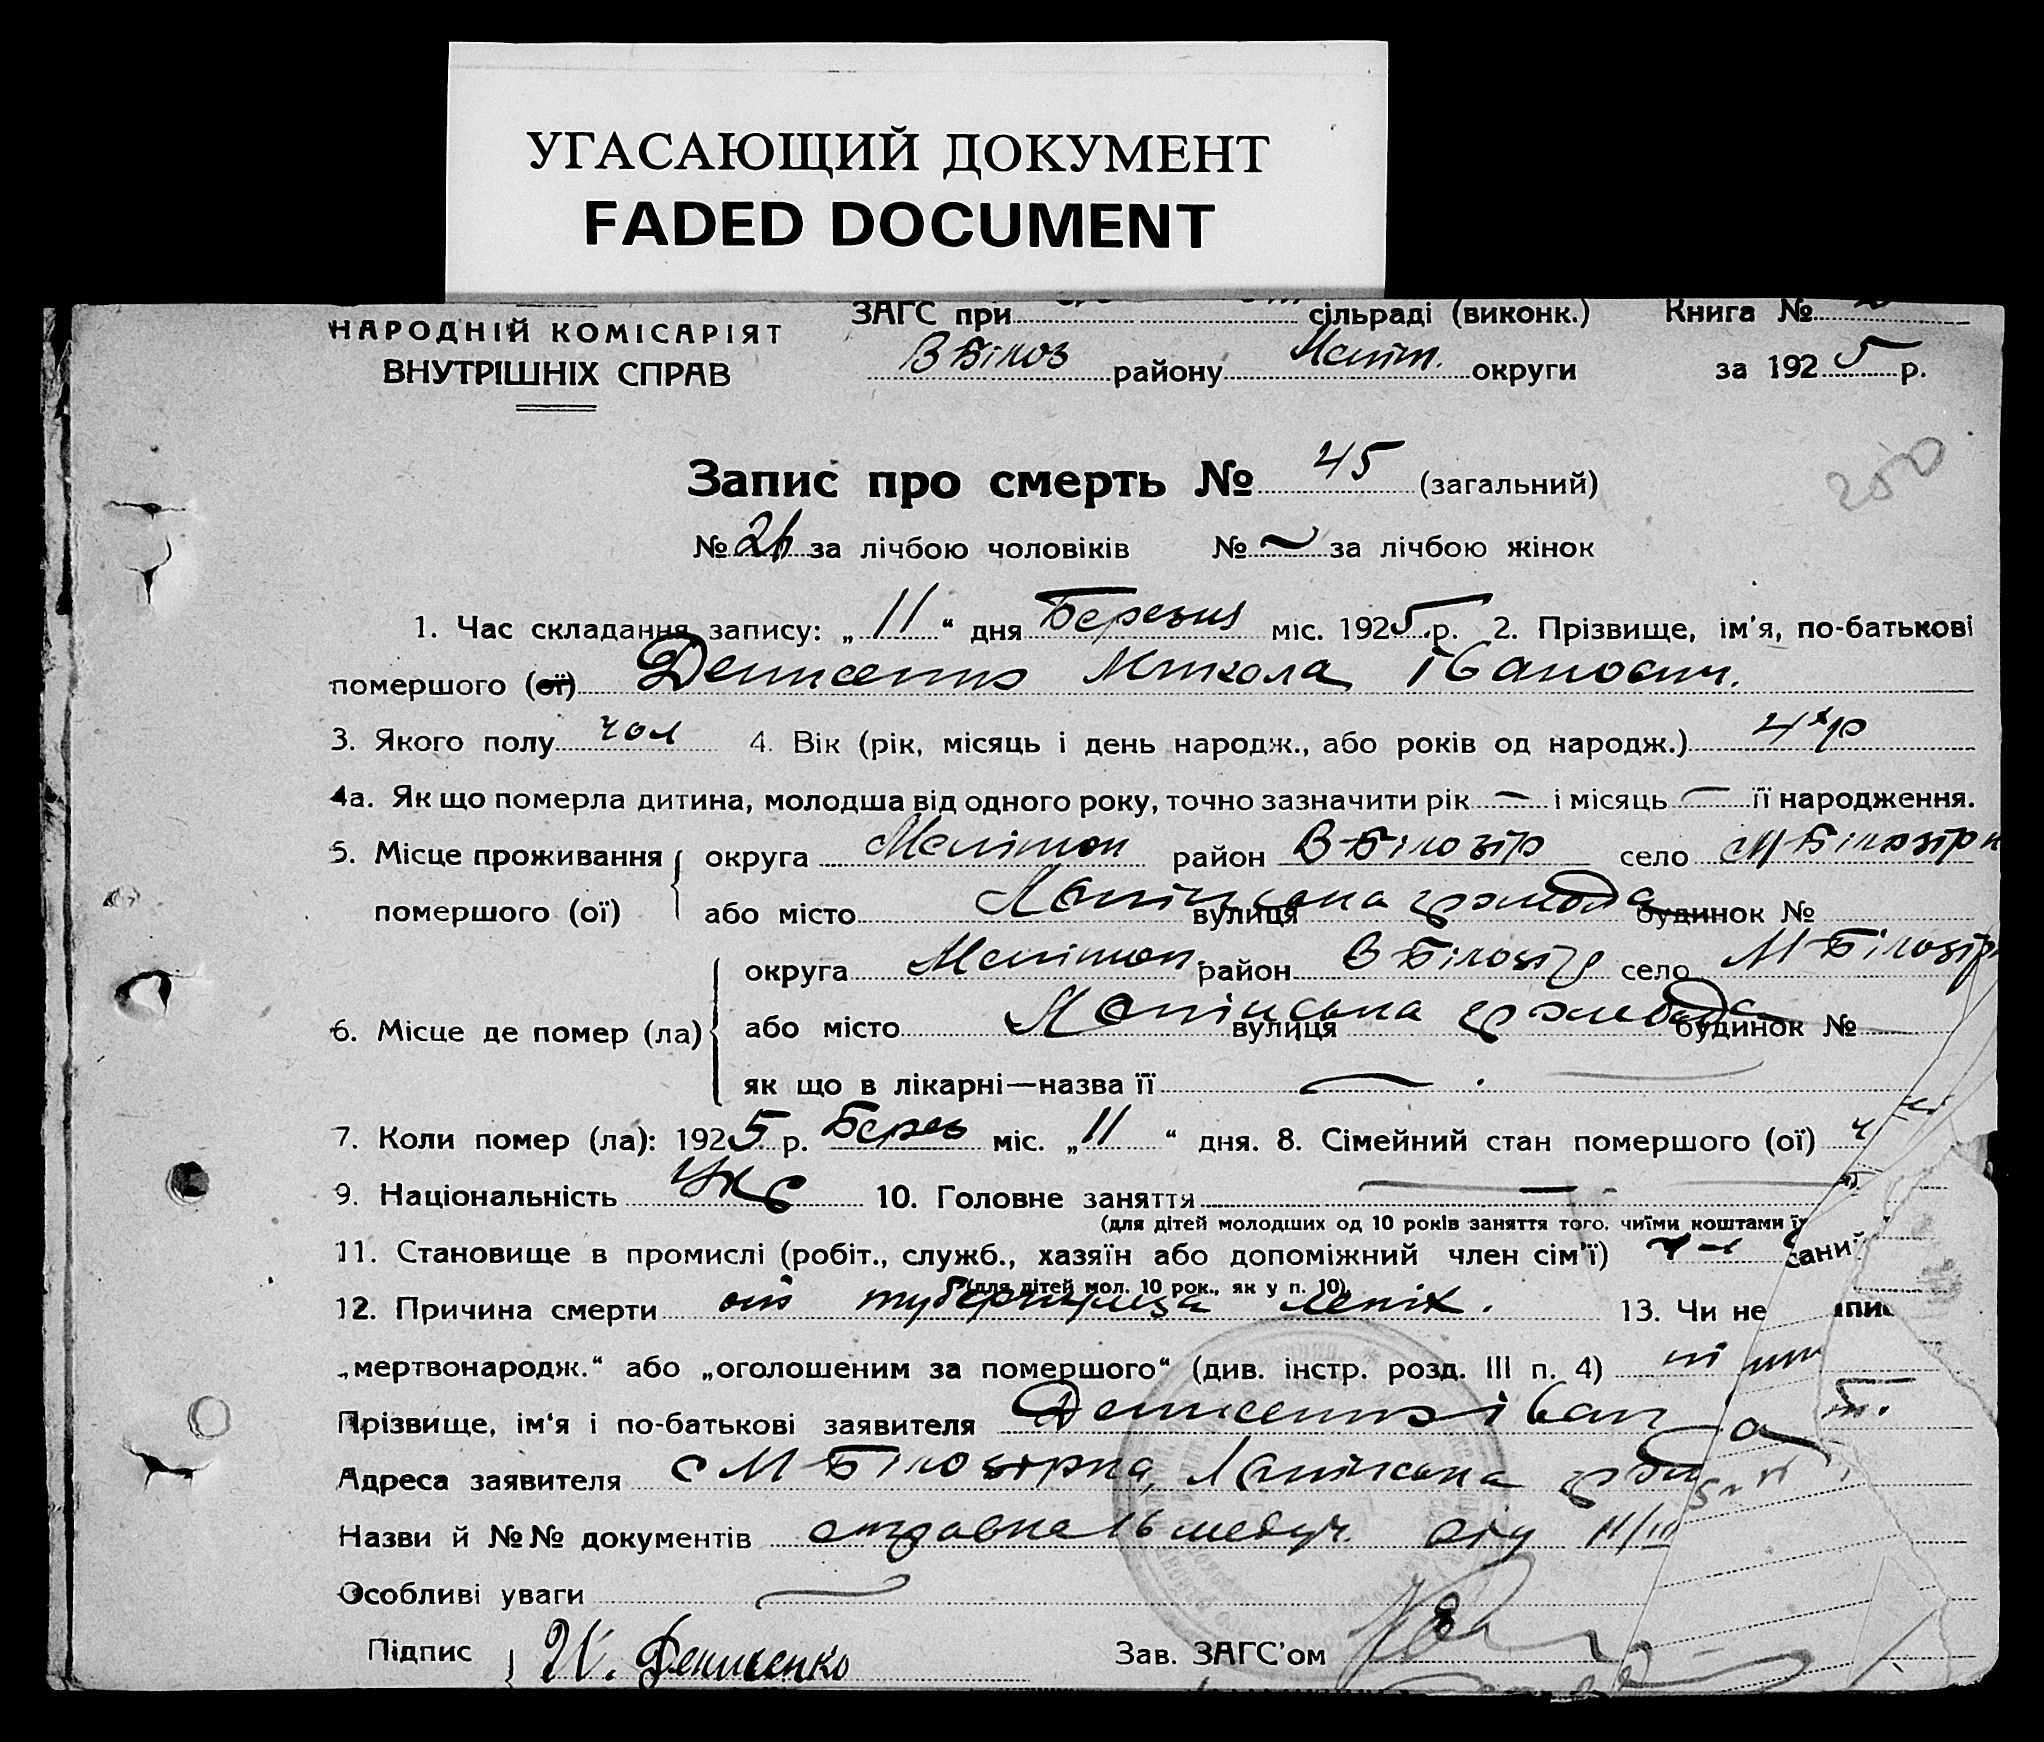 УГАСАЮЩИЙ ДОКУМЕНТ
FADED DOCUMENT
НАРОДНІЙ КОМІСАРІЯТ
ВНУТРІШНІХ СПРАВ
ЗАГС при сільраді (виконк.) Книга №
В Білоз району Меліт. округи за 1925 р.
Запис про смерть № 45 (загальний)
250
№ за лічбою чоловіків № — за лічбою жінок
1. Час складання запису: „11“ дня Березня міс. 1925 р. 2. Прізвище, ім'я, по-батькові
помершого (ої) Денисенко Микола Іванович.
3. Якого полу чол 4. Вік (рік, місяць і день народж., або років од народж.) 4х р
4а. Як що померла дитина, молодша від одного року, точно зазначити рік — і місяць — її народження.
5. Місце проживання округа Мелітоп район В-Білозір село М-Білозірк
помершого (ої) або місто вулиця громада будинок №
6. Місце де помер (ла) округа Мелітоп. район В Білозір село М-Білозір
або місто вулиця громада будинок №
як що в лікарні—назва її —
7. Коли помер (ла): 1925 р. Берез міс. „11“ дня. 8. Сімейний стан помершого (ої)
9. Національність Укр 10. Головне заняття —
(для дітей молодших од 10 років заняття того, чиїми коштами їх
11. Становище в промислі (робіт., служб., хазяїн або допоміжний член сім'ї)
(для дітей мол. 10 рок., як у п. 10)
12. Причина смерти от туберкульоза легіх. 13. Чи не
„мертвонародж.“ або „оголошеним за помершого“ (див. інстр. розд. III п. 4) ні
Прізвище, ім'я і по-батькові заявителя Денисенко Іван
Адреса заявителя с М Білозірка,
Назви й №№ документів справка 16 медуч. від 11/III
Особливі уваги —
Підпис И. Денисенко Зав. ЗАГС'ом